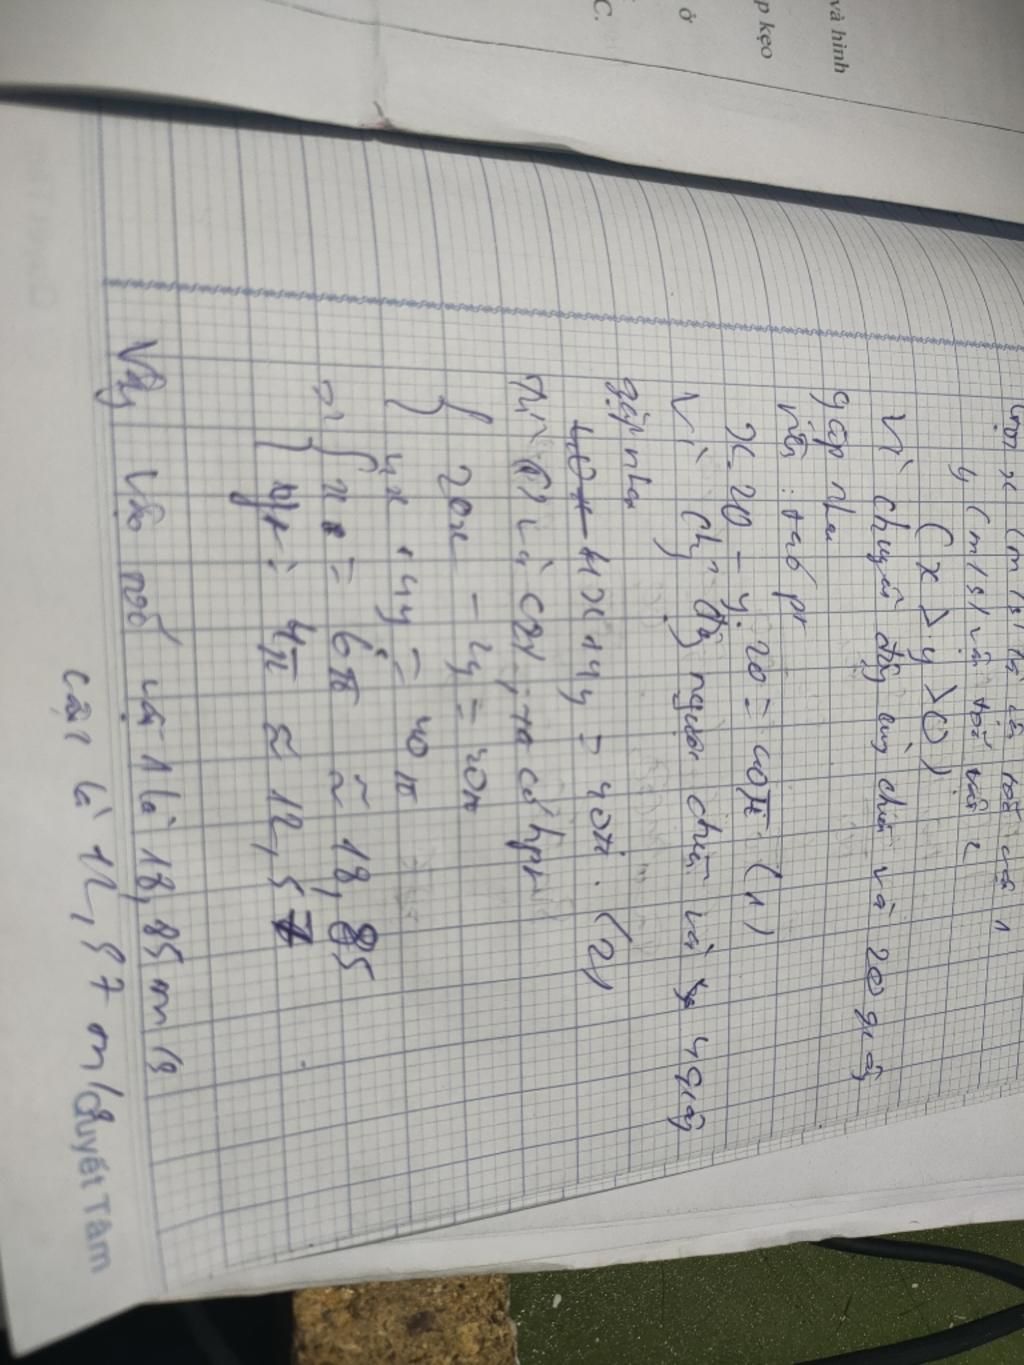 và hình
p kẹo
ở
C.
Gọi x (m/s) là vận tốc vật 1
y (m/s) vận tốc vật 2
(x > y > 0)
Vì chuyển động cùng chiều và 20 giây
gặp nhau
nên: ta có pt
x.20 - y.20 = 40π (1)
Vì chuyển động ngược chiều và 4 giây
gặp nhau
4x + 4y = 40π. (2)
Từ (1) và (2), ta có hpt
20x - 2y = 40π
4x + 4y = 40π
=> x = 6π ≈ 18,85
y = 4π ≈ 12,57
Vậy vận tốc vật 1 là 18,85 m/s
vật 2 là 12,57 m/s
Quyết Tâm